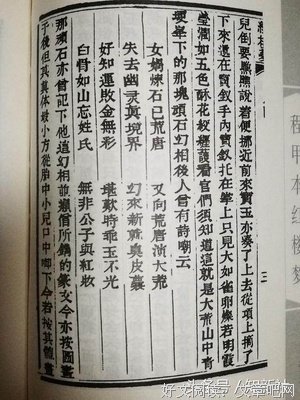 程甲本 紅樓夢
兒倒要瞧瞧說着便挪近前來寶玉亦湊了上去從項上摘了
下來遞在寶釵手內寶釵托在掌上只見大如雀卵燦若明霞
瑩潤如五色酥花紋纏護看官們須知道這就是大荒山中青
埂峯下的那塊頑石幻相後人曾有詩嘲云
女媧煉石已荒唐 又向荒唐演大荒
失去幽靈眞境界 幻來新就臭皮囊
好知運敗金無彩 堪歎時乖玉不光
白骨如山忘姓氏 無非公子與紅妝
那頑石亦曾記下他這幻相並癩僧所鐫的篆文今亦按圖畫
于後但其眞體最小方從胎中小兒口中啣下今若按其體畫